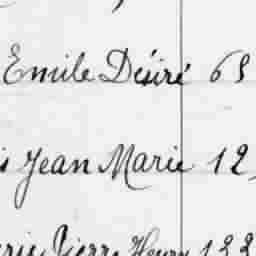 Emile Désiré 65
s Jean Marie 12
rie Pierre Henry 122